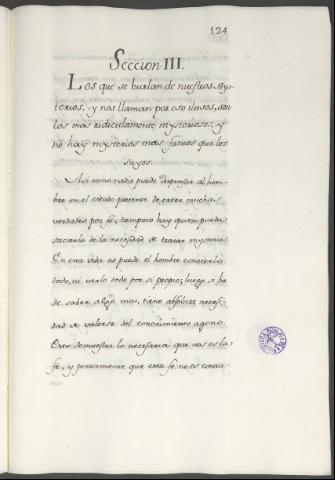 124
Seccion III.
Los que se burlan de nuestros Mys-
terios, y nos llaman por eso ilusos, son
los mas ridiculamente mysteriosos; y
no hay mysterios mas fatuos que los
suyos.
Asi como nadie puede dispensar al hom-
bre en el estado presente de creer muchas
verdades por fé, tampoco hay quien pueda
sacarlo de la necesidad de tratar mysterios.
En esta vida no puede el hombre conocerlo
todo, ni verlo todo por si propio; luego si ha
de saber algo mas, tiene absoluta necesi-
dad de valerse del conocimiento ageno.
Esto demuestra lo necesaria que nos es la
fé, y juntamente que esta fé no es contra